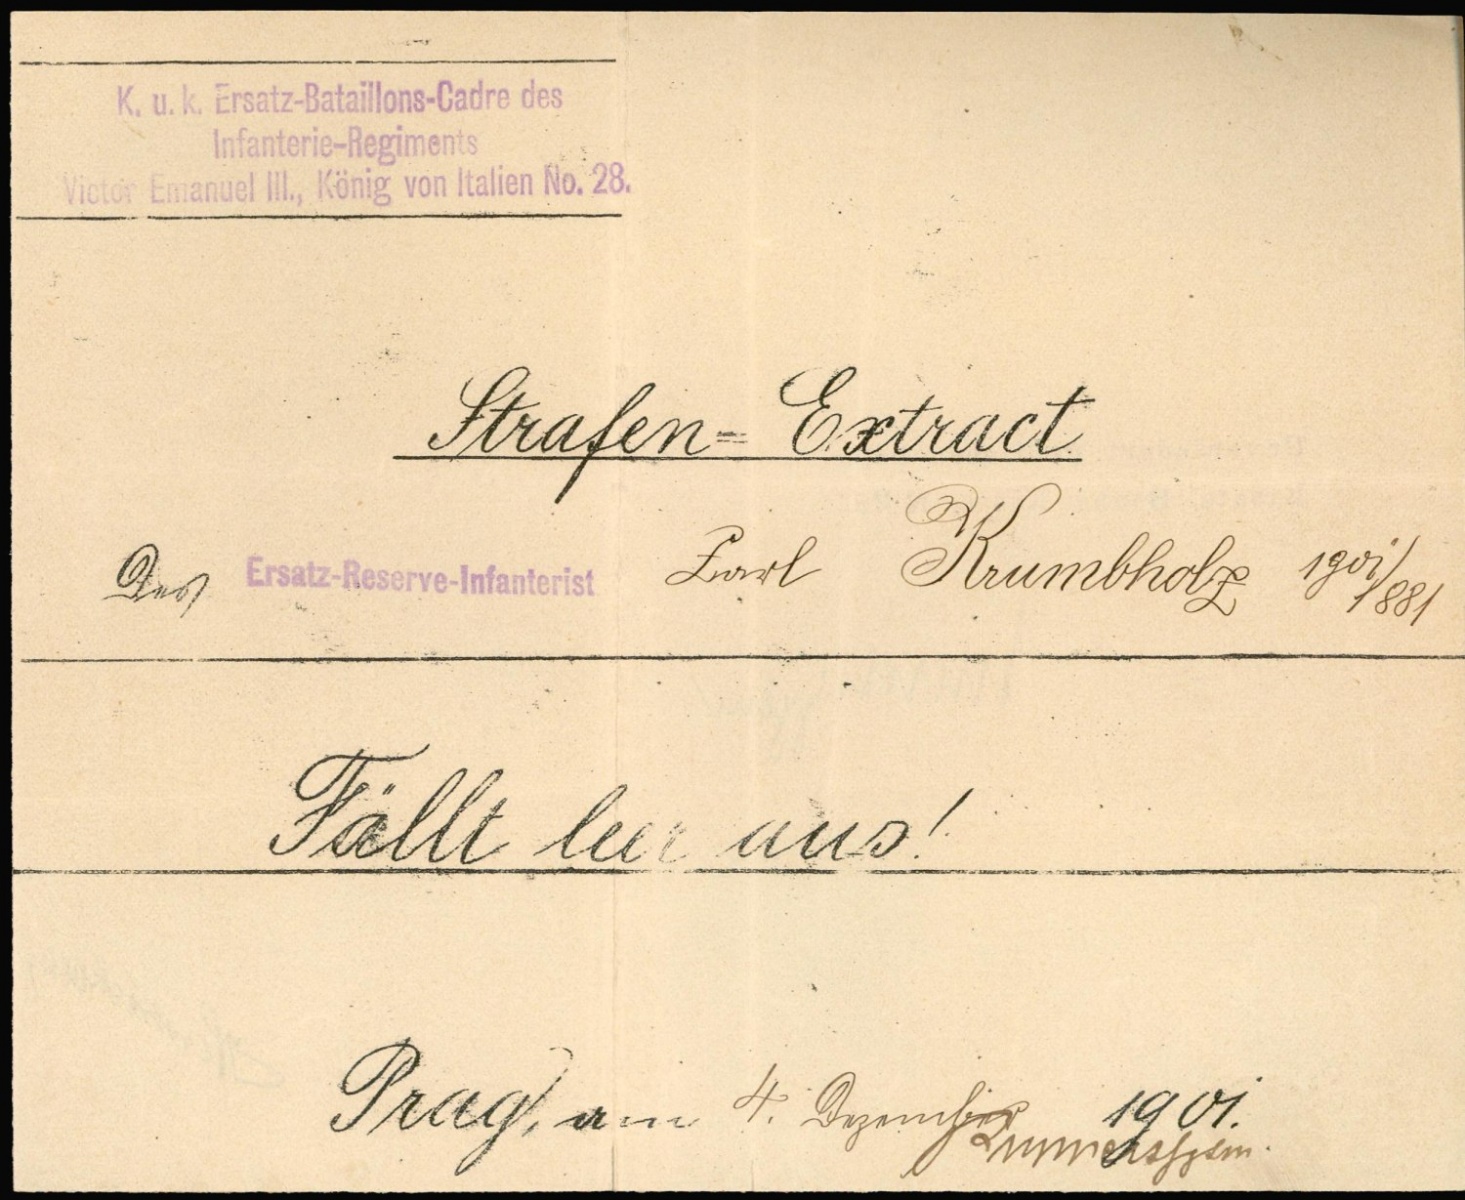 K. u. k. Ersatz-Bataillons-Cadre des
Infanterie-Regiments
Victor Emanuel III., König von Italien No. 28.
Strafen= Extract
Des Ersatz-Reserve-Infanterist Carl Krumbholz 1901/1881
Fällt leer aus!
Prag, am 4. Dezember 1901.